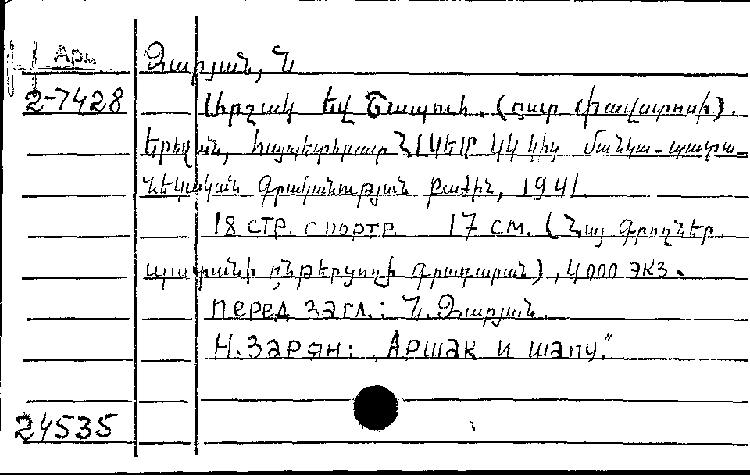 Арм Զարյան, Ն
2-7428 Արշակ եվ Շապուհ. (ըստ Փավստոսի).
Երեվան, հայպետհրատ ՀԼԿԵՄ ԿԿ կից մանկա-պատա-
նեկական գրականության բաժին, 1941
18 стр. с портр. 17 см. (Հայ գրողներ
պատանի ընթերցողի գրադարան), 4000 экз.
перед загл.: Ն. Զարյան.
Н. Зарян: „Аршак и шапу."
24535